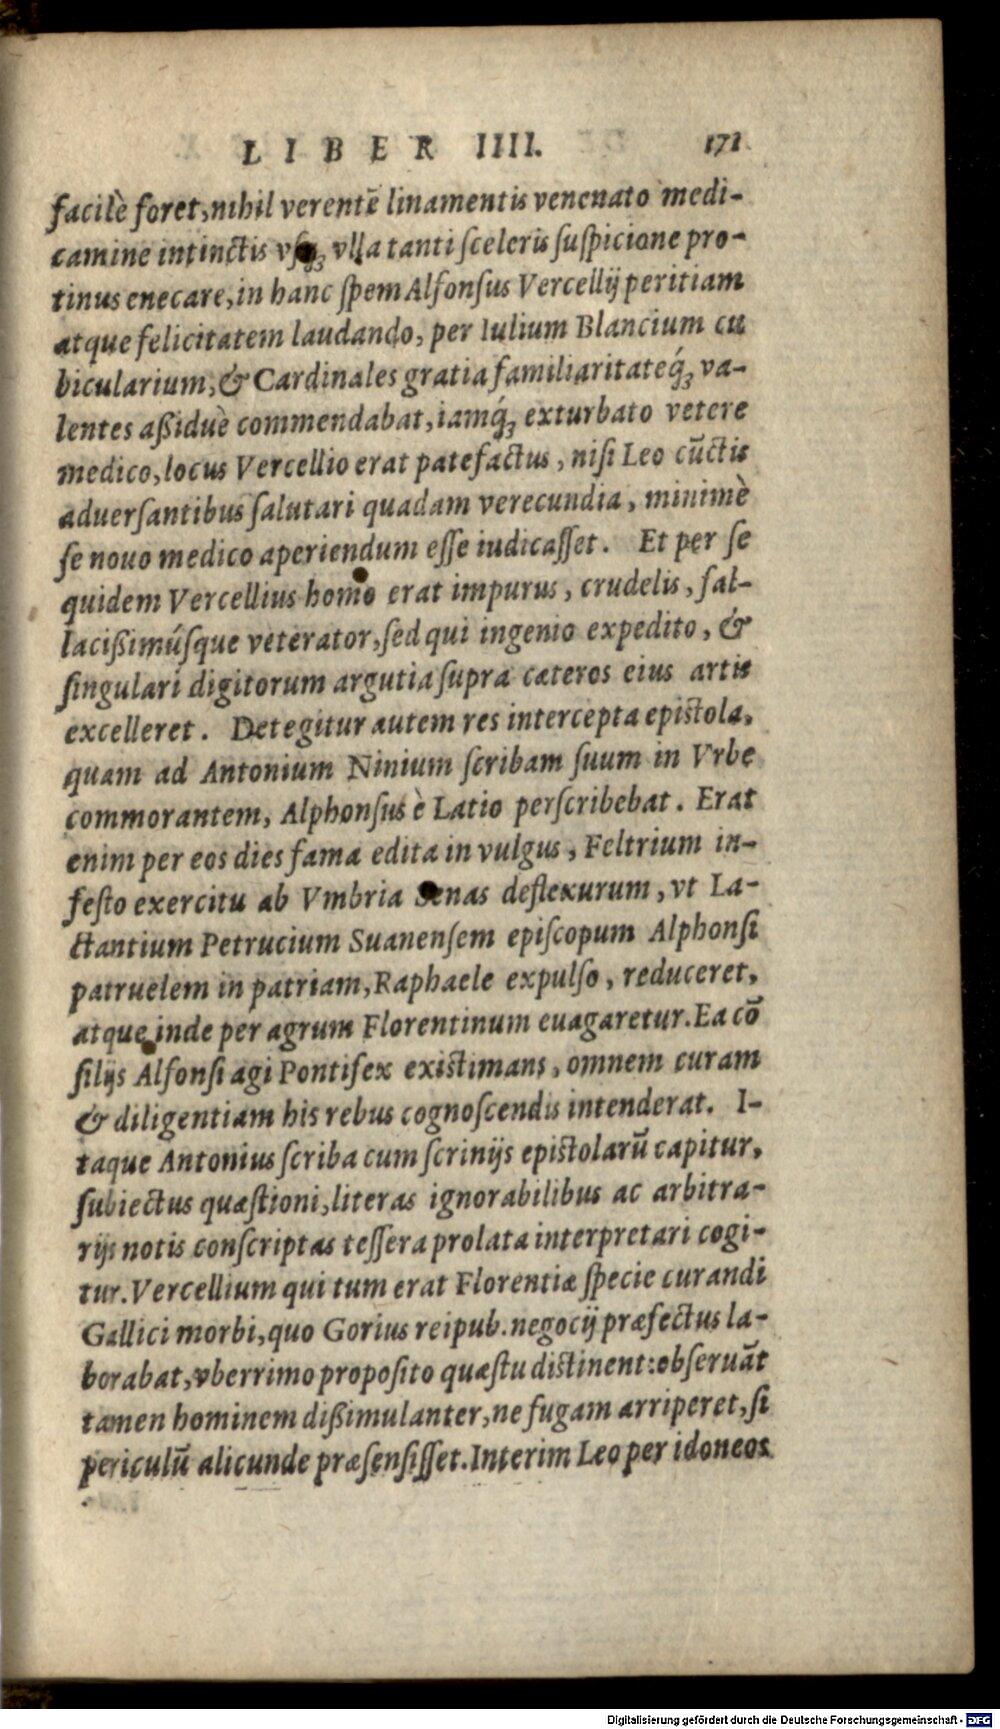 LIBER IIII. 171
facilè foret, nihil verentē linamentis venenato medi-
camine intinctis vſq́ꝫ vlla tanti ſceleris ſuſpicione pro-
tinus enecare, in hanc ſpem Alfonſus Vercellij peritiam
atque felicitatem laudando, per Iulium Blancium cu
bicularium, & Cardinales gratia familiaritateq́ꝫ va-
lentes aßiduè commendabat, iamq́ꝫ exturbato vetere
medico, locus Vercellio erat patefactus, niſi Leo cūctis
aduerſantibus ſalutari quadam verecundia, minimè
ſe nouo medico aperiendum eſſe iudicaſſet. Et per ſe
quidem Vercellius homo erat impurus, crudelis, fal-
lacißimúſque veterator, ſed qui ingenio expedito, &
ſingulari digitorum argutia ſupra cæteros eius artis
excelleret. Detegitur autem res intercepta epiſtola,
quam ad Antonium Ninium ſcribam ſuum in Vrbe
commorantem, Alphonſus è Latio perſcribebat. Erat
enim per eos dies fama edita in vulgus, Feltrium in-
feſto exercitu ab Vmbria Senas deflexurum, vt La-
ctantium Petrucium Suanenſem epiſcopum Alphonſi
patruelem in patriam, Raphaele expulſo, reduceret,
atque inde per agrum Florentinum euagaretur. Ea cō
ſilijs Alfonſi agi Pontifex exiſtimans, omnem curam
& diligentiam his rebus cognoſcendis intenderat. I-
taque Antonius ſcriba cum ſcrinijs epiſtolarū capitur,
ſubiectus quæſtioni, literas ignorabilibus ac arbitra-
rijs notis conſcriptas teſſera prolata interpretari cogi-
tur. Vercellium qui tum erat Florentiæ ſpecie curandi
Gallici morbi, quo Gorius reipub. negocij præfectus la-
borabat, vberrimo propoſito quæſtu diſtinent: obſeruāt
tamen hominem dißimulanter, ne fugam arriperet, ſi
periculū alicunde præſenſiſſet. Interim Leo per idoneos
Digitalisierung gefördert durch die Deutsche Forschungsgemeinschaft - DFG